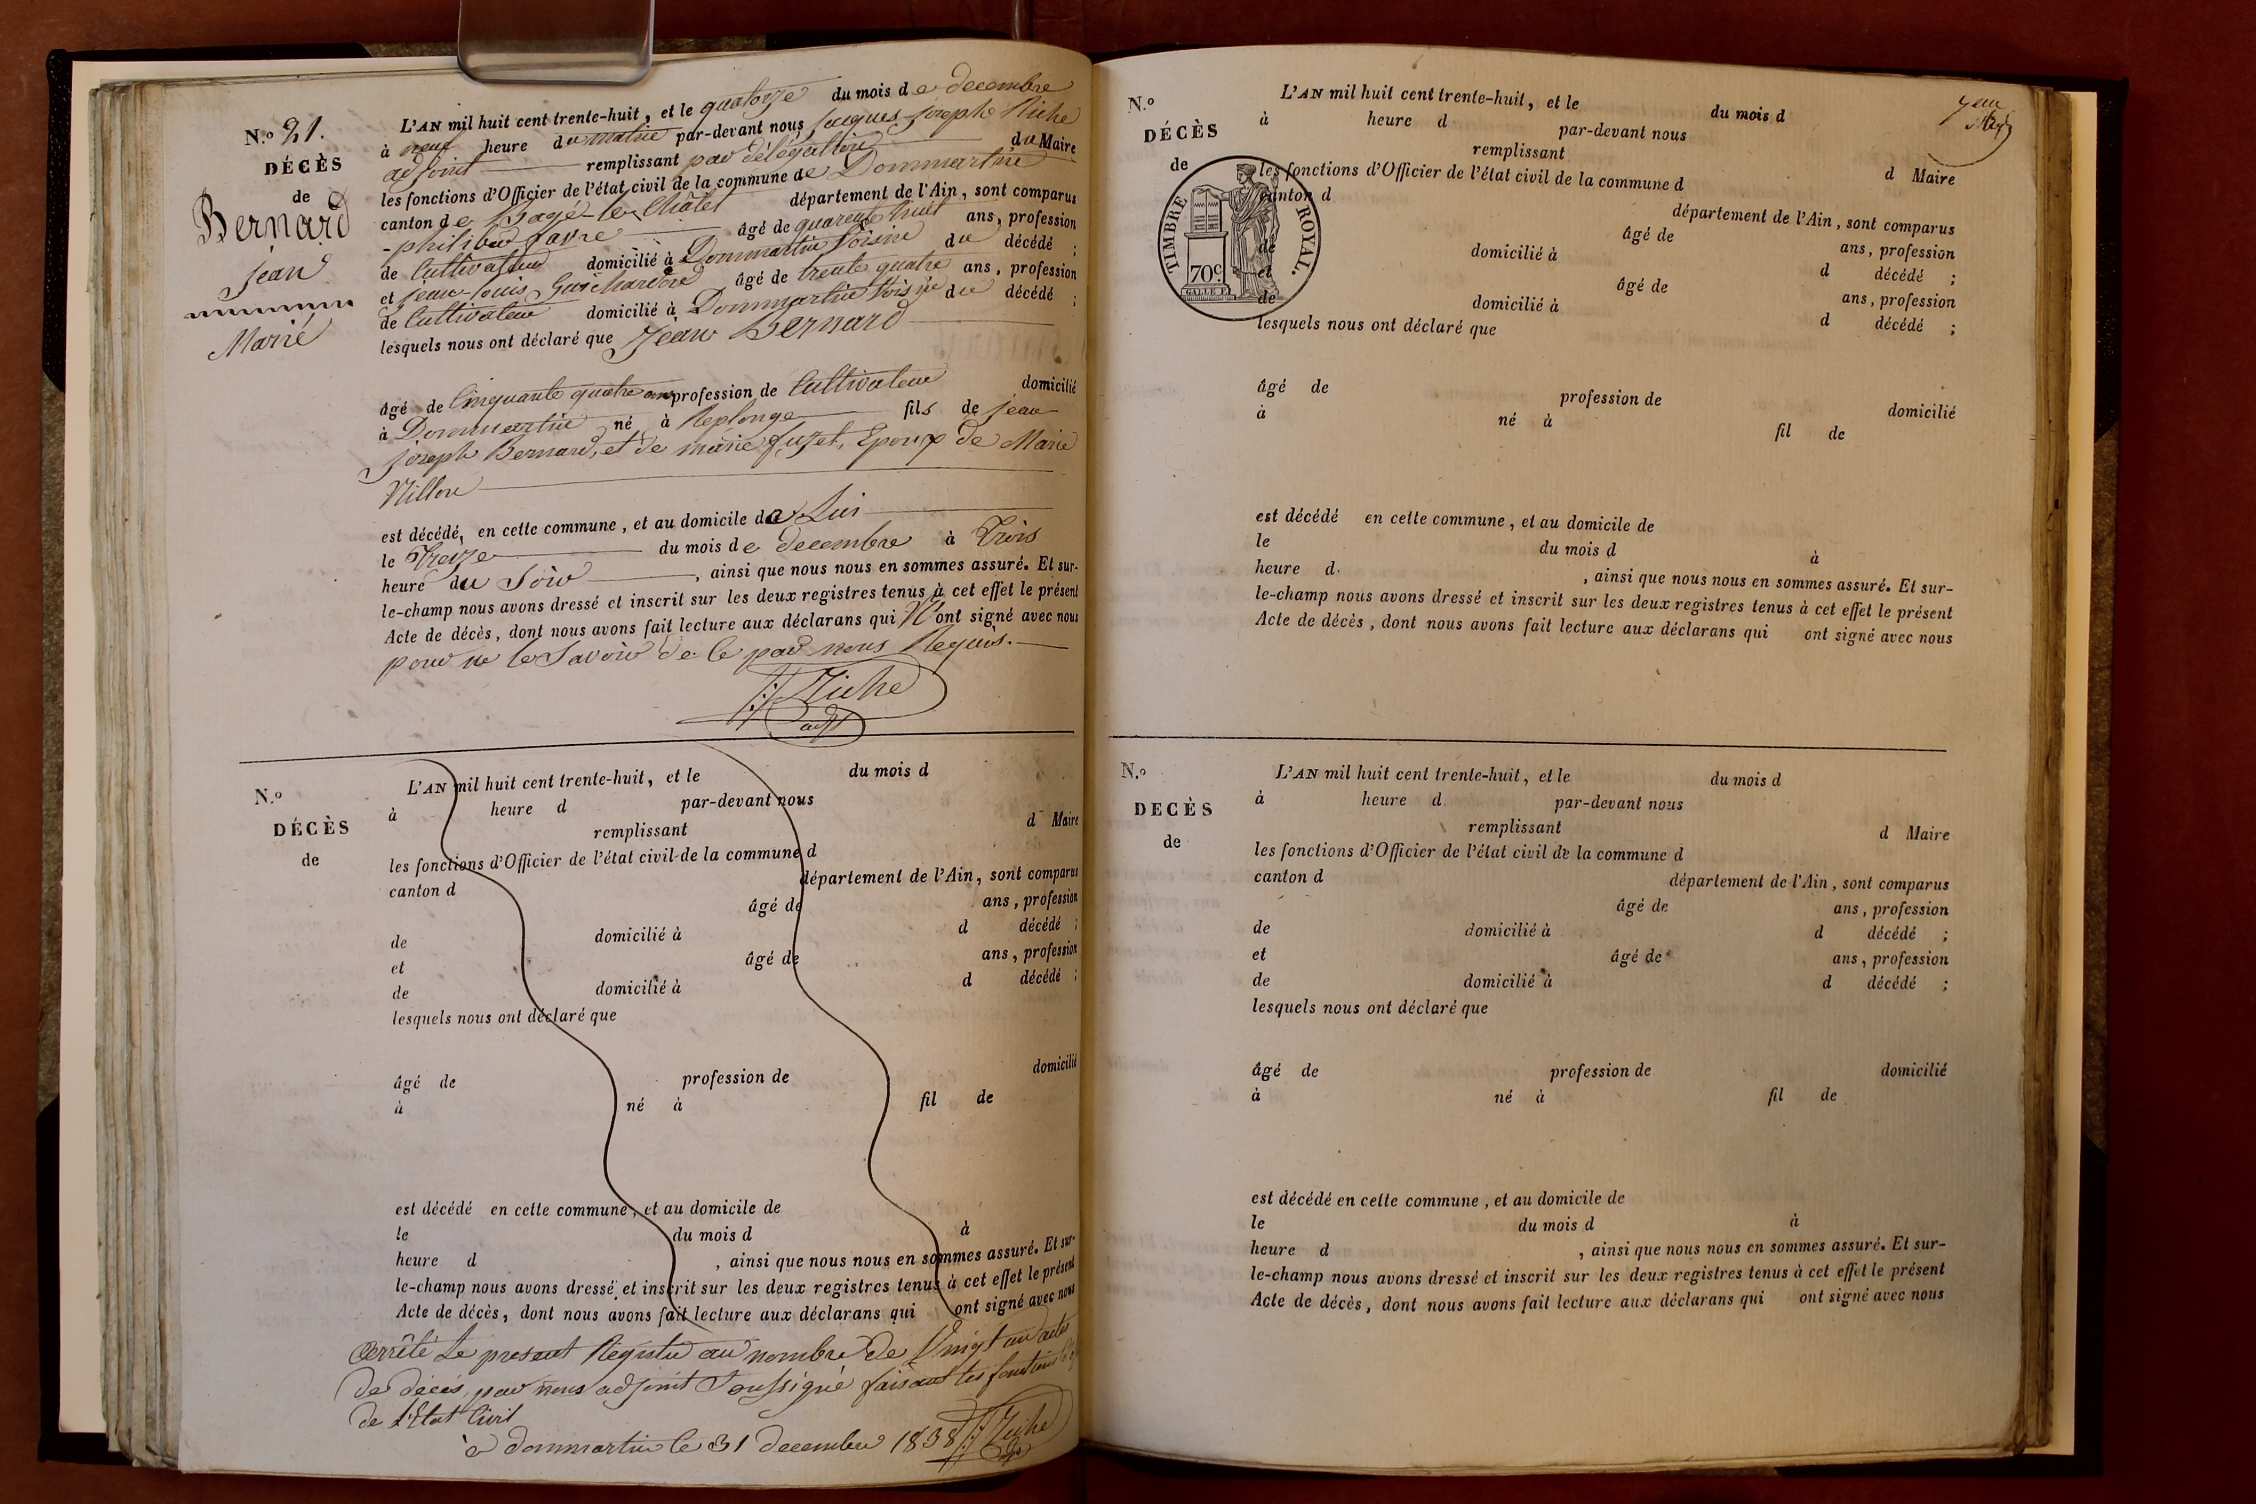 N.o 21.
DÉCÈS
de
Bernard
jean
Marié
L'AN mil huit cent trente-huit, et le quatorze du mois de decembre
à neuf heure du matin par-devant nous jacques joseph Riche
adjoint remplissant par délégation du Maire
les fonctions d'Officier de l'état civil de la commune de Dommartin
canton de Bagé-le-Châtel département de l'Ain, sont comparus
philibert favre âgé de quarente huit ans, profession
de Cultivateur domicilié à Dommartin Voisin du décédé ;
et jean-louis Guichardon âgé de trente quatre ans, profession
de Cultivateur domicilié à Dommartin Voisin du décédé ;
lesquels nous ont déclaré que Jean Bernard
âgé de Cinquante quatre ans profession de Cultivateur domicilié
à Dommartin né à Replonge fils de jean
joseph Bernard, et de marie fuzet, Epoux de Marie
Nillon
est décédé, en cette commune, et au domicile de Lui
le Treize du mois de decembre à Trois
heure du Soir, ainsi que nous nous en sommes assuré. Et sur-
le-champ nous avons dressé et inscrit sur les deux registres tenus à cet effet le présent
Acte de décès, dont nous avons fait lecture aux déclarans qui N'ont signé avec nous
pour ne le Savoir de ce par nous Requis.
JJ Riche
adjt
N.o
DÉCÈS
de
L'AN mil huit cent trente-huit, et le du mois d
à heure d par-devant nous
remplissant d Maire
les fonctions d'Officier de l'état civil de la commune d
canton d département de l'Ain, sont comparus
âgé de ans, profession
de domicilié à d décédé ;
et âgé de ans, profession
de domicilié à d décédé ;
lesquels nous ont déclaré que
âgé de profession de domicilié
à né à fil de
est décédé en cette commune, et au domicile de
le du mois d à
heure d , ainsi que nous nous en sommes assuré. Et sur-
le-champ nous avons dressé et inscrit sur les deux registres tenus à cet effet le présent
Acte de décès, dont nous avons fait lecture aux déclarans qui ont signé avec nous
arrêté Le present Registre au nombre de Vingt un actes
de décés, par nous adjoint Soussigné faisant les fonctions
de l'Etat Civil
à dommartin le 31 decembre 1838 JJ Riche
N.o
DÉCÈS
de
TIMBRE ROYAL.
70c
GALLE F.
L'AN mil huit cent trente-huit, et le du mois d
à heure d par-devant nous
remplissant d Maire
les fonctions d'Officier de l'état civil de la commune d
canton d département de l'Ain, sont comparus
âgé de ans, profession
de domicilié à d décédé ;
et âgé de ans, profession
de domicilié à d décédé ;
lesquels nous ont déclaré que
âgé de profession de domicilié
à né à fil de
est décédé en cette commune, et au domicile de
le du mois d à
heure d , ainsi que nous nous en sommes assuré. Et sur-
le-champ nous avons dressé et inscrit sur les deux registres tenus à cet effet le présent
Acte de décès, dont nous avons fait lecture aux déclarans qui ont signé avec nous
N.o
DECÈS
de
L'AN mil huit cent trente-huit, et le du mois d
à heure d par-devant nous
remplissant d Maire
les fonctions d'Officier de l'état civil de la commune d
canton d département de l'Ain, sont comparus
âgé de ans, profession
de domicilié à d décédé ;
et âgé de ans, profession
de domicilié à d décédé ;
lesquels nous ont déclaré que
âgé de profession de domicilié
à né à fil de
est décédé en cette commune, et au domicile de
le du mois d à
heure d , ainsi que nous nous en sommes assuré. Et sur-
le-champ nous avons dressé et inscrit sur les deux registres tenus à cet effet le présent
Acte de décès, dont nous avons fait lecture aux déclarans qui ont signé avec nous